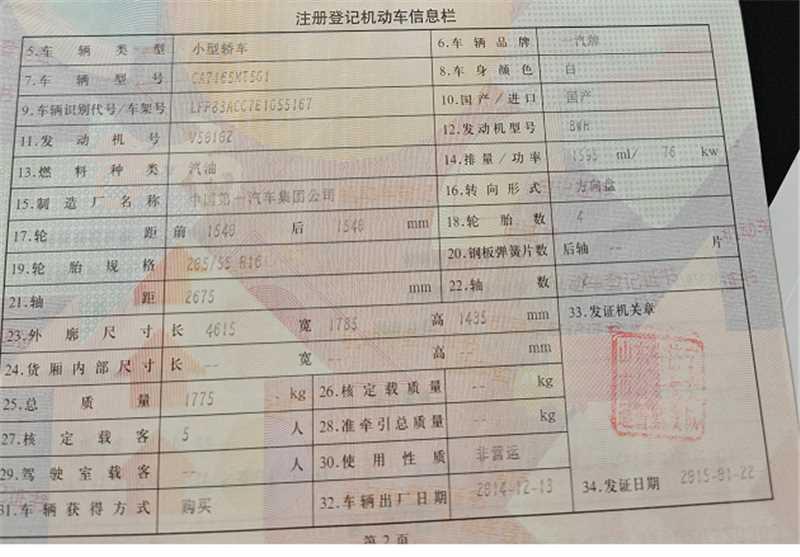 注册登记机动车信息栏
5.车辆类型 小型轿车 6.车辆品牌 一汽牌
7.车辆型号 CA7165MT5G1 8.车身颜色 白
9.车辆识别代号/车架号 LFP83ACC7E1G55167 10.国产/进口 国产
11.发动机号 V56162 12.发动机型号 BWH
13.燃料种类 汽油 14.排量/功率 1595 ml/ 76 kw
15.制造厂名称 中国第一汽车集团公司 16.转向形式 方向盘
17.轮距 前 1540 后 1540 mm 18.轮胎数 4
19.轮胎规格 205/55 R16 20.钢板弹簧片数 后轴 -- 片
21.轴距 2675 mm 22.轴数 2
23.外廓尺寸 长 4615 宽 1785 高 1435 mm 33.发证机关章
24.货厢内部尺寸 长 -- 宽 -- 高 -- mm
25.总质量 1775 kg 26.核定载质量 -- kg
27.核定载客 5 人 28.准牵引总质量 -- kg
29.驾驶室载客 -- 人 30.使用性质 非营运
31.车辆获得方式 购买 32.车辆出厂日期 2014-12-13 34.发证日期 2015-01-22
第 2 页